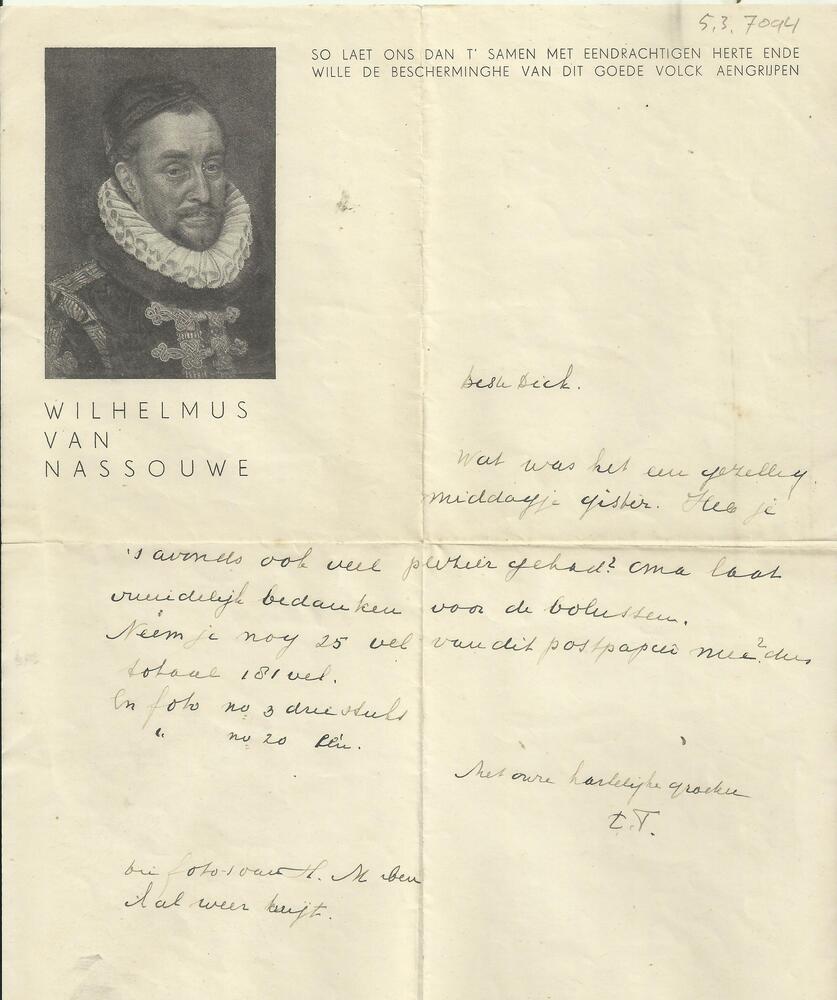 5.3. 7094
SO LAET ONS DAN T' SAMEN MET EENDRACHTIGEN HERTE ENDE
WILLE DE BESCHERMINGHE VAN DIT GOEDE VOLCK AENGRIJPEN
WILHELMUS
VAN
NASSOUWE
Beste Dick.
Wat was het een gezellig
middagje gister. Heb je
's avonds ook veel plezier gehad? Oma laat
vriendelijk bedanken voor de bolussen.
Neem je nog 25 vel van dit postpapier mee? dus
totaal 181 vel.
En foto no 3 drie stuks
" no 20 één.
Met onze hartelijke groeten
T.
foto's van H. M ben
ik al weer kwijt.